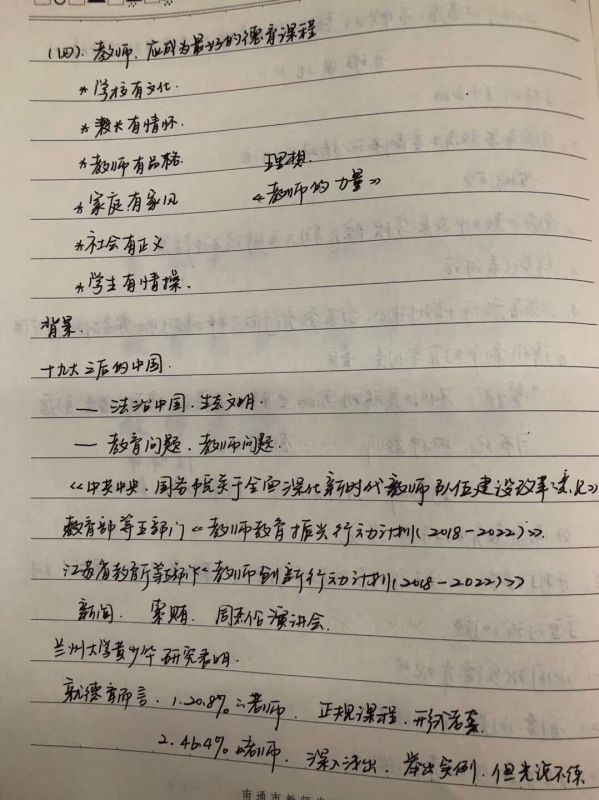 (四).教师,应成为最好的德育课程
*学校有文化.
*教长有情怀.
*教师有品格. 理想.
*家庭有家风 《教师的力量》
*社会有正义
*学生有情操.
背景.
十九大三后的中国.
— 法治中国.生态文明.
— 教育问题.教师问题.
《中共中央.国务院关于全面深化新时代教师队伍建设改革意见》
教育部等五部门《教师教育振兴行动计划(2018-2022)》.
江苏省教育厅等部门《教师创新行动计划(2018-2022)》
新闻. 索贿. 演讲会.
兰州大学黄少华研究表明.
就德育而言.1.20.8% 老师. 正规课程.形式
2.46.4% 老师. 深入浅出.举出实例.但光说不练
南通市教师